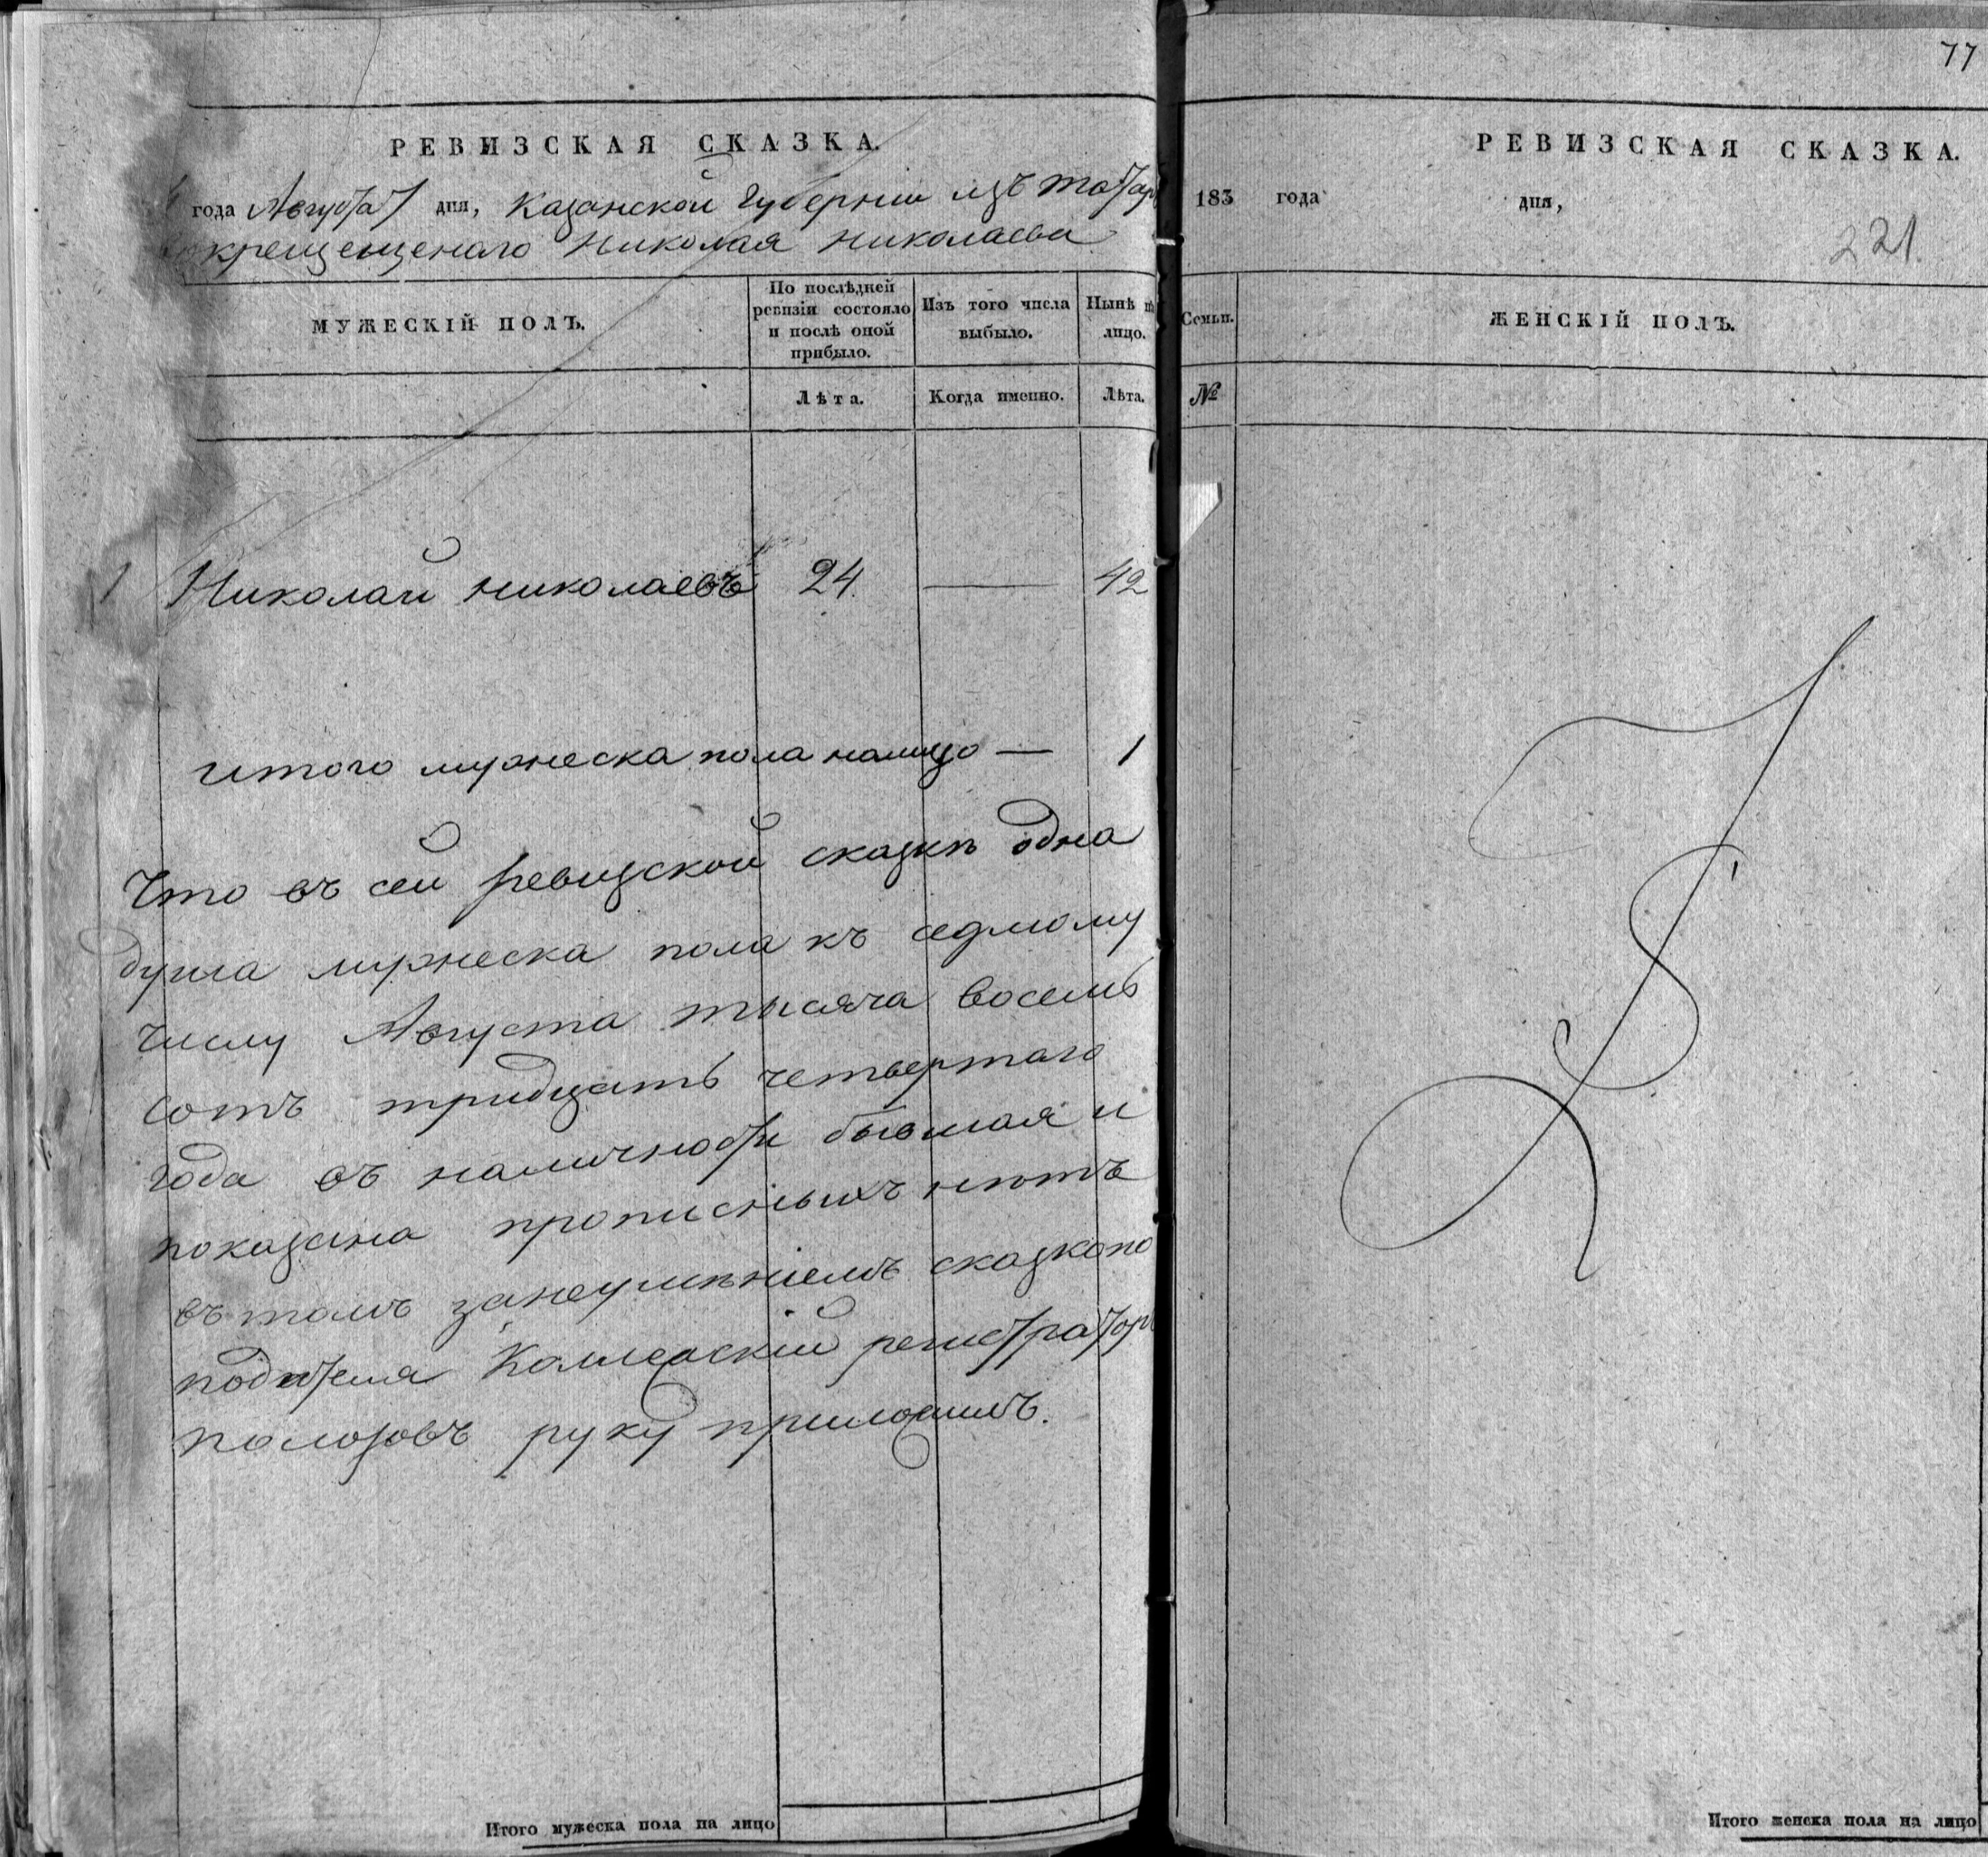 РЕВИЗСКАЯ СКАЗКА.
года Августа 7 дня, Казанской Губернiи изъ татар
крещещенаго Николая Николаева
МУЖЕСКIЙ ПОЛЪ.
По послѣдней ревизiи состояло и послѣ оной прибыло.
Изъ того числа выбыло.
Нынѣ на лицо.
Лѣта.
Когда именно.
Лѣта.
1 Николай Николаевъ 24. — 42
итого мужеска пола налицо — 1
Что въ сей ревизской сказкѣ одна
душа мужеска пола къ седмому
числу Августа тысяча восемь
сотъ тридцать четвертаго
года въ наличности бывшая и
показана прописныхъ нѣтъ
въ томъ занеумѣнiемъ сказкопо
подателя Коллежскiй регистраторъ
полозовъ руку приложилъ.
Итого мужеска пола на лицо
77
РЕВИЗСКАЯ СКАЗКА.
183 года дня,
221.
Семьи.
ЖЕНСКIЙ ПОЛЪ.
№
Итого женска пола на лицо